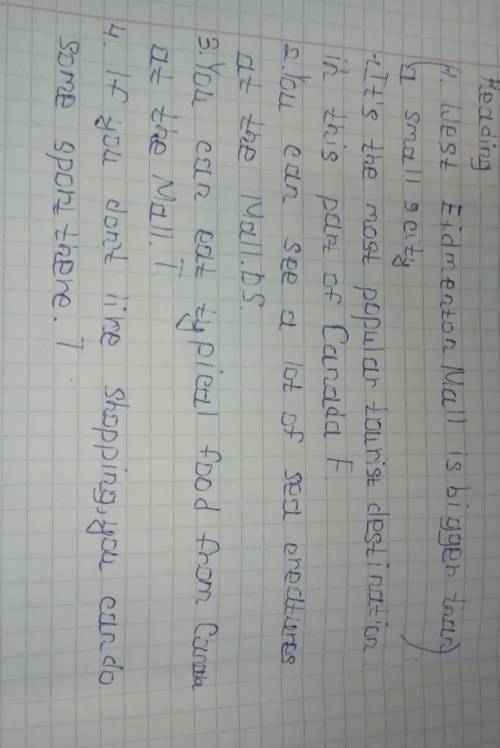 Reading
(4. West Eidmenton Mall is bigger than)
(a small scity
1. It's the most popular tourist destination
in this part of Canada F
2. You can see a lot of sea creatures
at the Mall. DS.
3. You can eat typical food from Canada
at the Mall. T
4. If you don't like shopping, you can do
some sport there. T